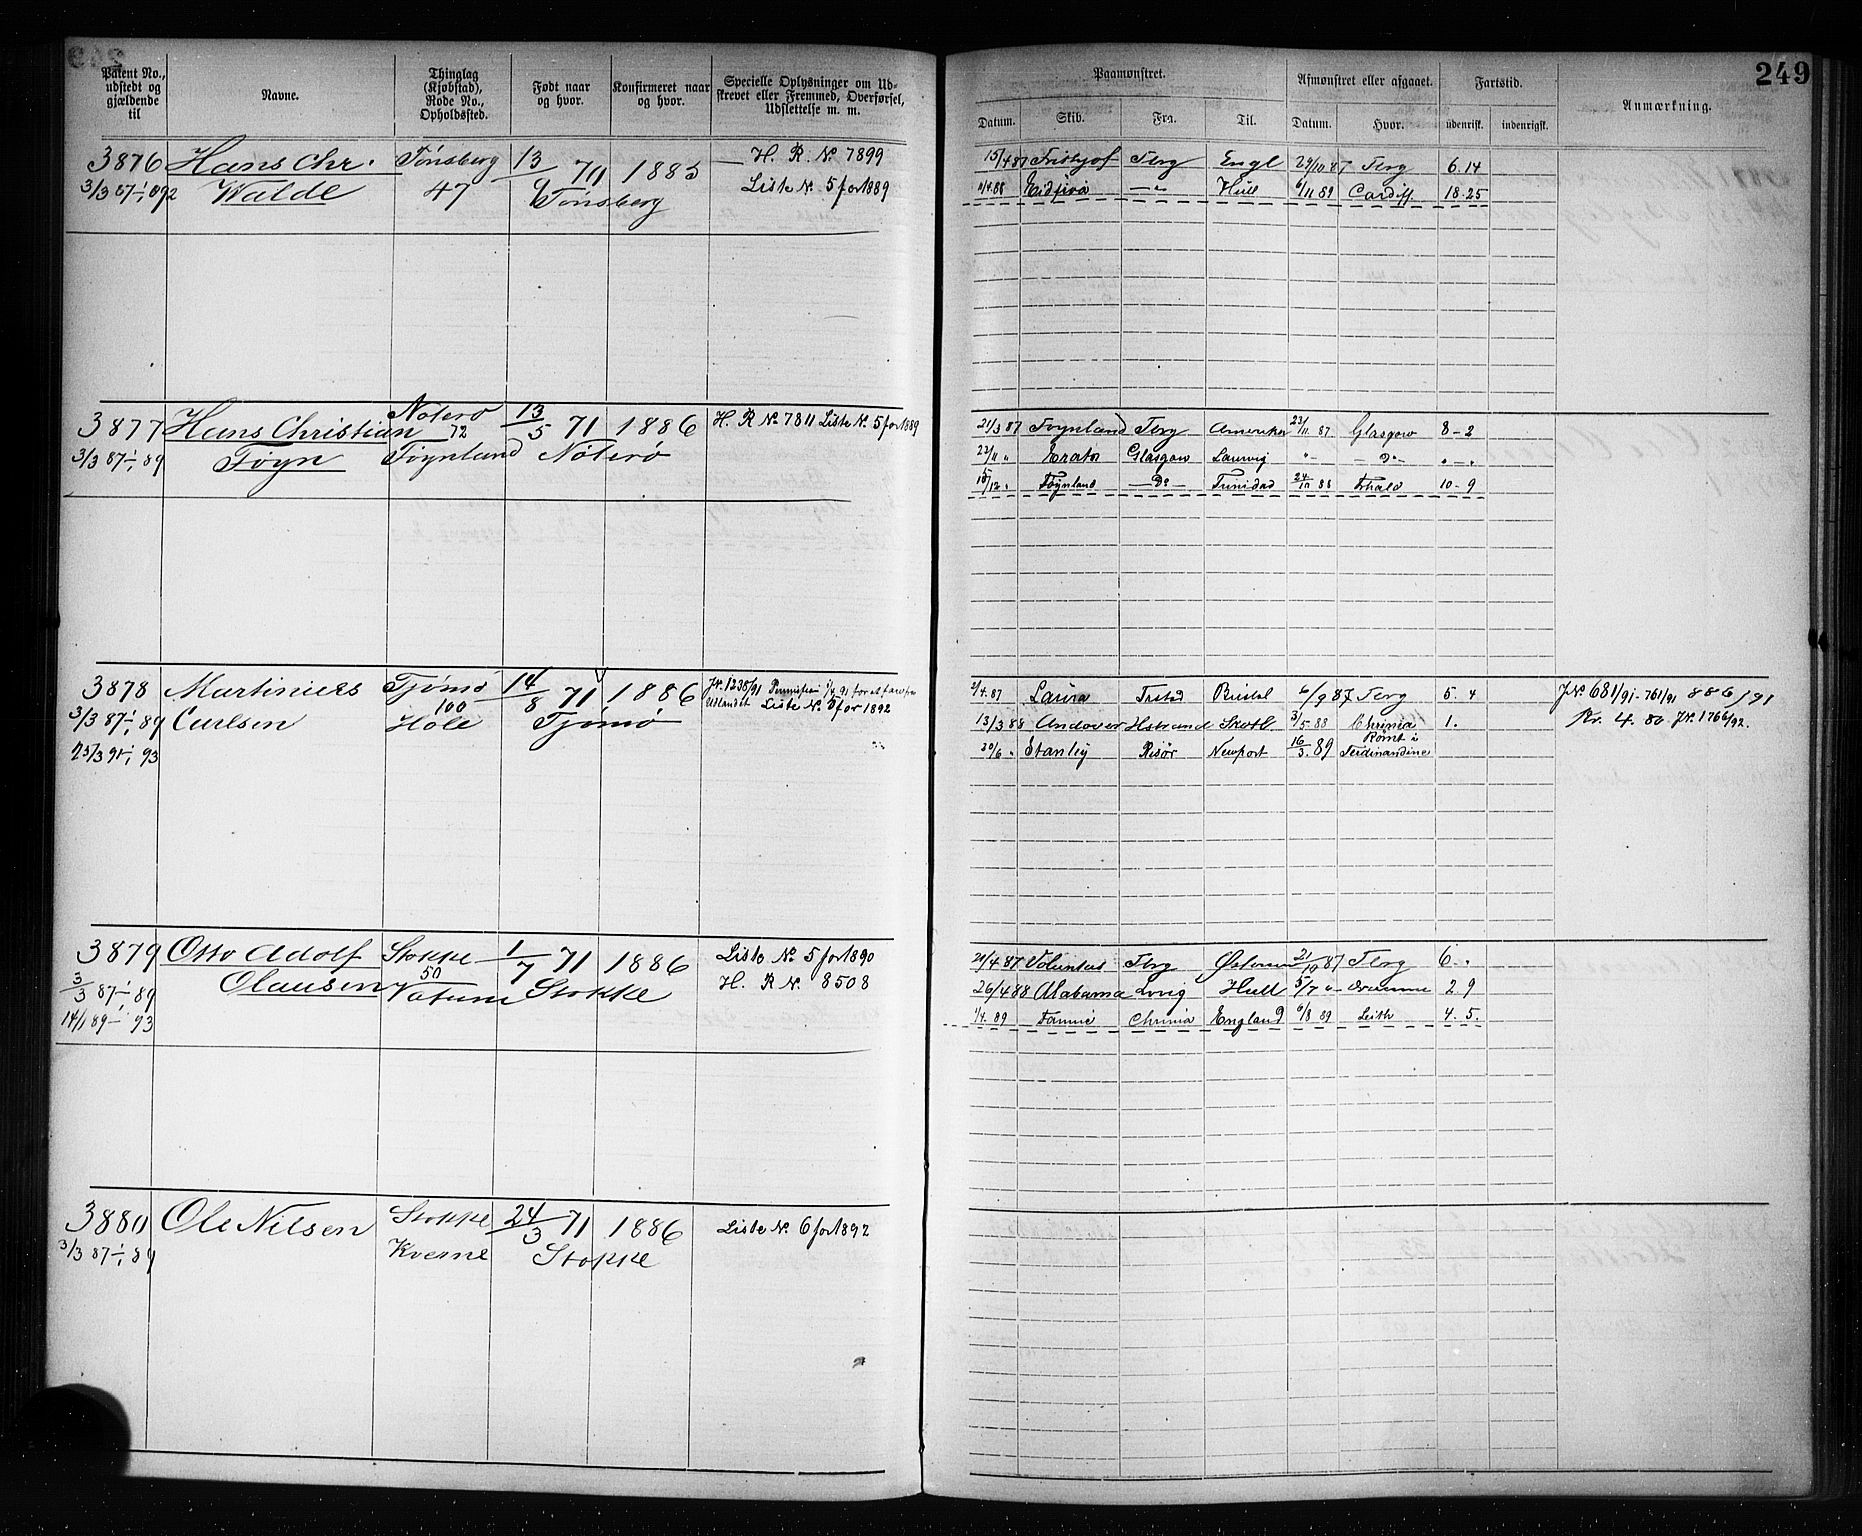 249
Patent No., udstedt og gjældende til
Navne.
Thinglag (Kjøbstad), Rode No., Opholdssted.
Født naar og hvor.
Konfirmeret naar og hvor.
Specielle Oplysninger om Udskrevet eller Fremmed, Overførsel, Udslettelse m. m.
Paamønstret.
Afmønstret eller afgaaet.
Fartstid.
Anmærkning.
Datum. Skib. Fra. Til. Datum. Hvor. udenrigsk. indenrigsk.
3876 Hans Chr. Tønsberg 13/6 70 1885 H. R. No 7899
3/3 87 Walde 47 Tønsberg Liste No 5 for 1889
15/4 87 Frithjof Tbrg Engl 29/10 87 Tbrg 6.14
Hull 6/11 89 Cardiff 18-25
3877 Hans Christian Nøterø 13/5 71 1886 H. R No 7811 Liste No 5 for 1889
72
3/3 87-1/1 89 Føyn Føynland Nøterø
21/3 87 Føynland Tbrg Amerika 23/11 87 Glasgow 8-2
22/11 " Erato Glasgow Laurvig " - Do -
Føynland - Do - Trinidad 24/10 88 Frhald 10-9
3878 Martinius Tjømø 14/8 71 1886 JN. 1238/91
100
3/3 87-1/1 89 Carlsen Hole Tjømø Udlandet Liste No 5 for 1892
25/3 91-1/1 93
2/4 87 Laura Frstad Bristol 6/9 87 Tbrg 5.4 JNo 681/91-761/91 886/91
13/3 88 Andover Hstrand Skotl 3/5 88 Chrania 1. Kr. 4.80 JN. 1766/92.
20/6 " Stanley Risør Newport 16/3 89 Rømt i Ferdinandina
3879 Otto Adolf Stokke 1/7 71 1886 Liste No 5 for 1890
50
3/3 87-1/1 89 Olausen Vatum Stokke H. R No 8508
14/1 89-1/1 93
21/4 87 Tbrg 21/10 87 Tbrg 6.
26/4 88 Alabama Lvig Hull 5/7 Dramme 2 9
1/4. 89 Fannie Chrania England 6/8 89 Leith 4. 5.
3880 Ole Nilsen Stokke 24/3 71 1886 Liste No 6 for 1892
3/3 87-1/1 89 Kverne Stokke